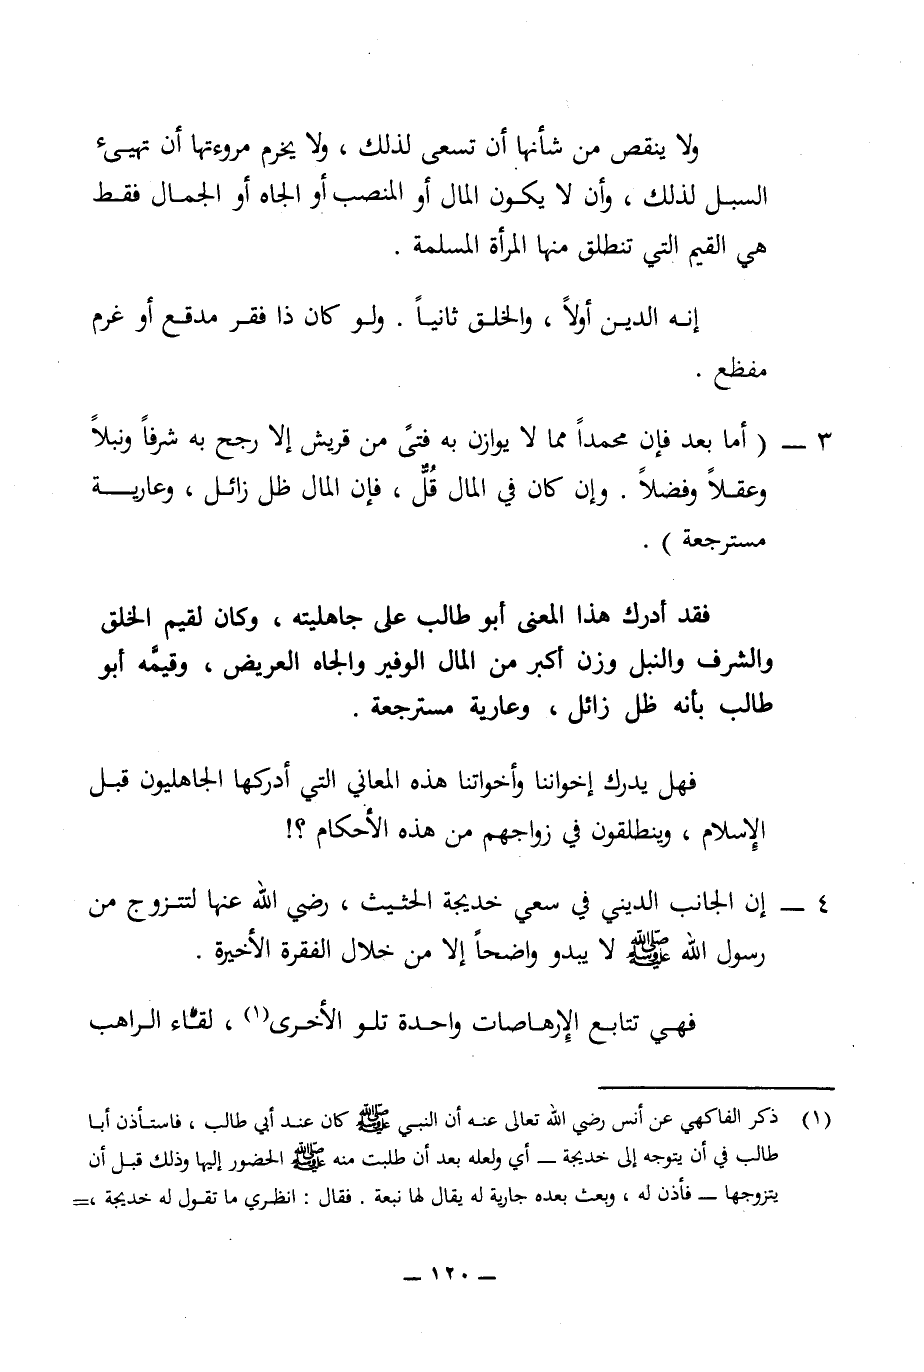 ولا ينقص من شأنها أن تسعى لذلك ، ولا يخرم مروءتها أن تهيىء
السبل لذلك ، وأن لا يكون المال أو المنصب أو الجاه أو الجمال فقط
هي القيم التي تنطلق منها المرأة المسلمة .
إنه الدين أولاً ، والخلق ثانياً . ولو كان ذا فقر مدقع أو غرم
مفظع .
٣ ــ ( أما بعد فإن محمداً مما لا يوازن به فتىً من قريش إلا رجح به شرفاً ونبلاً
وعقلاً وفضلاً . وإن كان في المال قُلٌّ ، فإن المال ظل زائل ، وعارية
مسترجعة ) .
فقد أدرك هذا المعنى أبو طالب على جاهليته ، وكان لقيم الخلق
والشرف والنبل وزن أكبر من المال الوفير والجاه العريض ، وقيمَّه أبو
طالب بأنه ظل زائل ، وعارية مسترجعة .
فهل يدرك إخواننا وأخواتنا هذه المعاني التي أدركها الجاهليون قبل
الإسلام ، وينطلقون في زواجهم من هذه الأحكام ؟!
٤ ــ إن الجانب الديني في سعي خديجة الحثيث ، رضي الله عنها لتتزوج من
رسول الله ﷺ لا يبدو واضحاً إلا من خلال الفقرة الأخيرة .
فهي تتابع الإرهاصات واحدة تلو الأخرى(١) ، لقاء الراهب
(١) ذكر الفاكهي عن أنس رضي الله تعالى عنه أن النبي ﷺ كان عند أبي طالب ، فاستأذن أبا
طالب في أن يتوجه إلى خديجة ــ أي ولعله بعد أن طلبت منه ﷺ الحضور إليها وذلك قبل أن
يتزوجها ــ فأذن له ، وبعث بعده جارية له يقال لها نبعة . فقال : انظري ما تقول له خديجة ،=
ــ ١٢٠ ــ